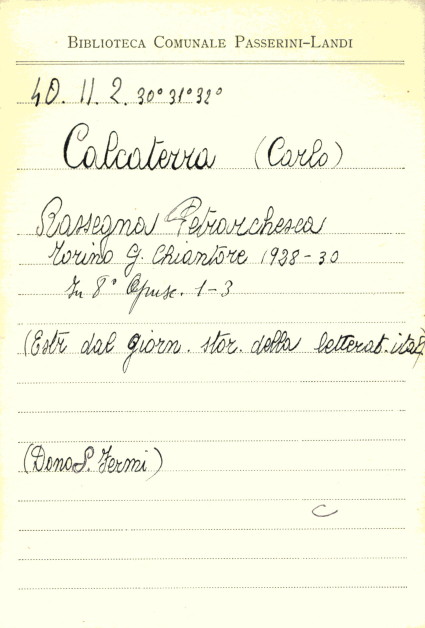 BIBLIOTECA COMUNALE PASSERINI-LANDI
40. II. 2. 30° 31° 32°
Calcaterra (Carlo)
Rassegna Petrarchesca
Torino G. Chiantore 1928-30
In 8° Opusc. 1-3
(Estr dal giorn. stor. della letterat. ital)
(Dono S. Fermi)
C